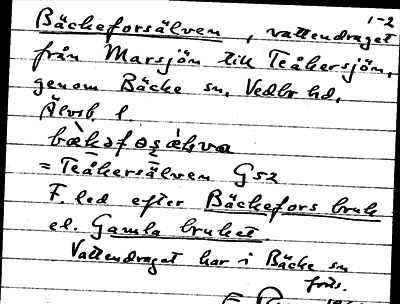 1-2
Bäckeforsälven, vattendraget
från Marsjön till Teåkersjön,
genom Bäcke sn, Vedbo hd,
Älvsb. l.
= Teåkersälven G52
F. led efter Bäckefors bruk
el. Gamla bruket
Vattendraget har i Bäcke sn
forts.